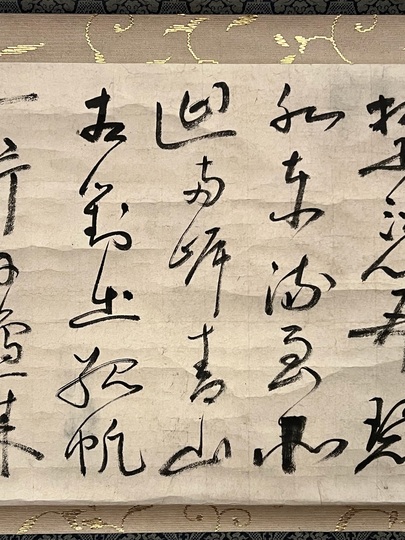 碧
水東流至此
迴兩岸青山
相對出孤帆
一片日邊來